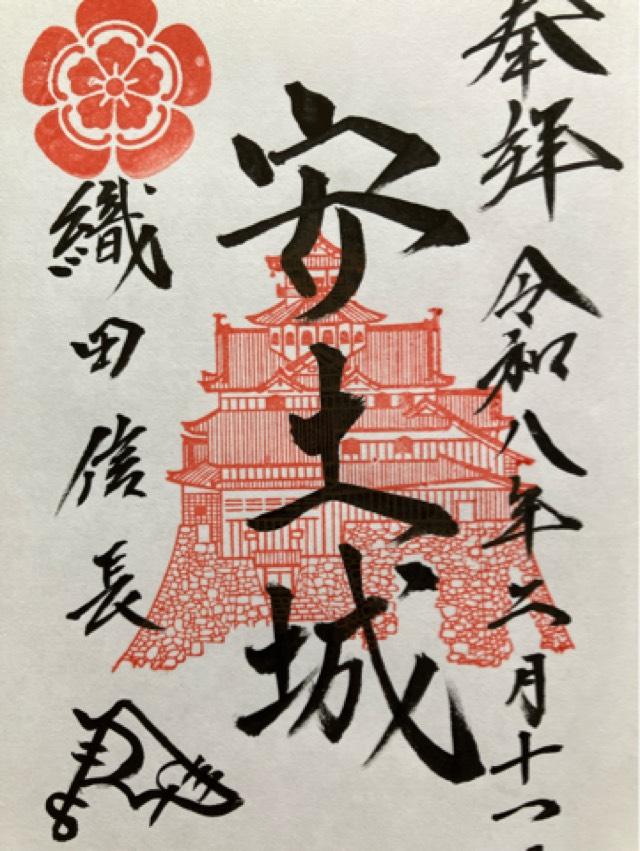 奉拝 令和八年二月十一
安土城
織田信長